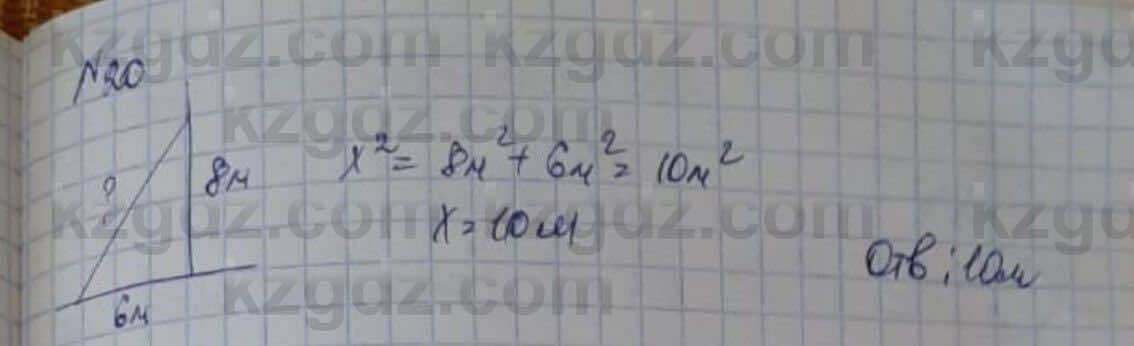 kzgdz.com kzgdz.com kzgd
N20
kzgdz.com
8м
x² = 8м² + 6м² = 10м²
?
kzgdz.com kzgdz.com kzgd
x = 10м
Отв: 10м
kzgdz.com
6м